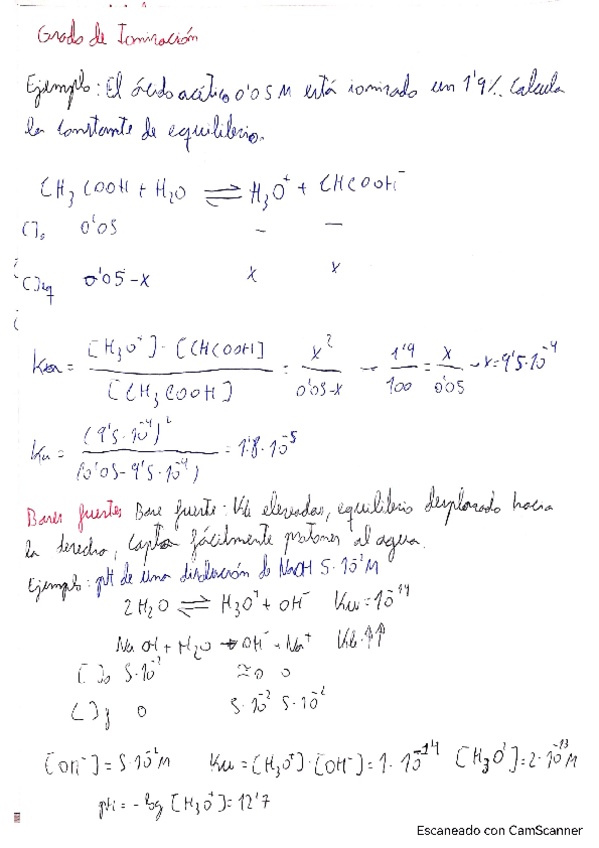 Grado de Ionización
Ejemplo: El ácido acético 0'05 M está ionizado un 1'9%. Calcula
la constante de equilibrio.
CH₃COOH + H₂O ⇌ H₃O⁺ + CHCOOH⁻
[ ]₀ 0'05 – –
[ ]eq 0'05-x x x
Ka = [H₃O⁺]·[CHCOOH] / [CH₃COOH] = x² / 0'05-x → 1'9/100 = x/0'05 → x = 9'5·10⁻⁴
Ka = (9'5·10⁻⁴)² / (0'05-9'5·10⁻⁴) = 1'8·10⁻⁵
Bases fuertes Base fuerte: Kb elevadas, equilibrio desplazado hacia
la derecho, captan fácilmente protones al agua.
Ejemplo: pH de una disolución de NaOH 5·10⁻²M
2H₂O ⇌ H₃O⁺ + OH⁻ Kw = 10⁻¹⁴
NaOH + H₂O → OH⁻ + Na⁺ Kb ↑↑
[ ]₀ 5·10⁻² ≅0 0
[ ]f 0 5·10⁻² 5·10⁻²
[OH⁻] = 5·10⁻²M Kw = [H₃O⁺]·[OH⁻] = 1·10⁻¹⁴ [H₃O⁺] = 2·10⁻¹³M
pH = -log [H₃O⁺] = 12'7
Escaneado con CamScanner